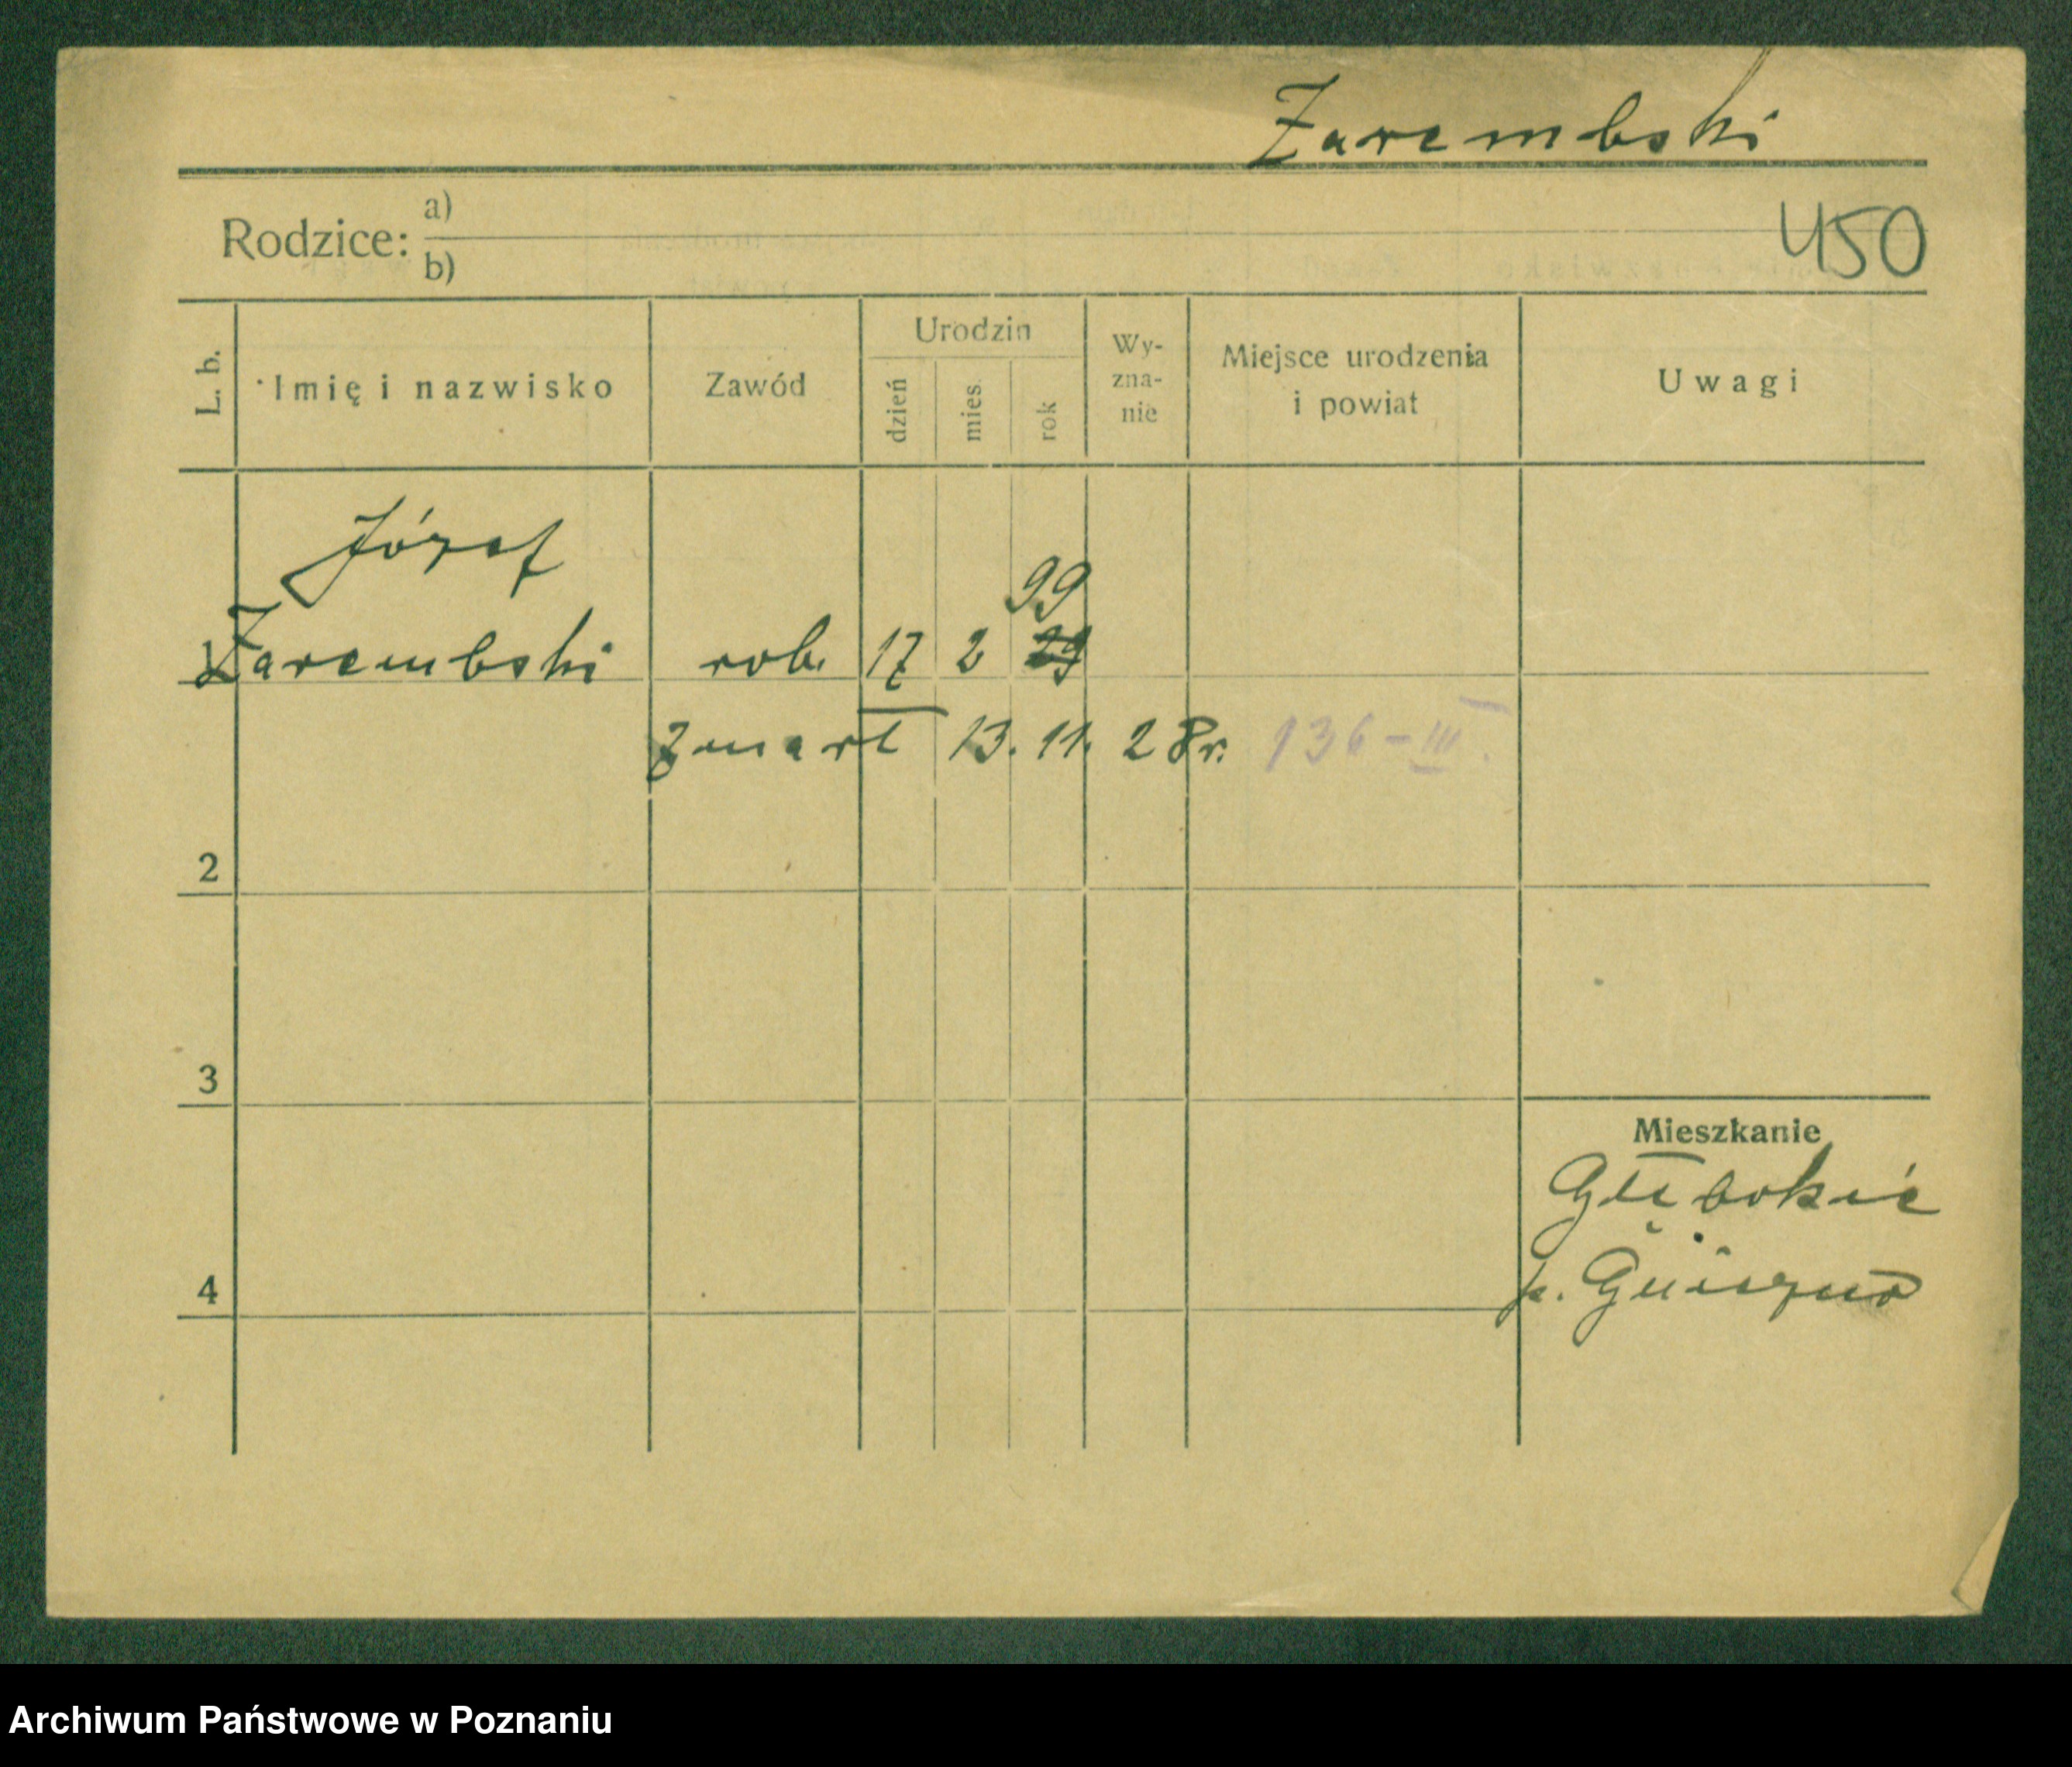 Zarembski
Rodzice: a)
b)
450
L. b.
Imię i nazwisko
Zawód
Urodzin
dzień
mies.
rok
Wy-
zna-
nie
Miejsce urodzenia
i powiat
Uwagi
Józef
99
1 Zarembski rob. 17 2 29
Zmarł 13. 11. 28 r. 136 - III.
2
3
Mieszkanie
Głębokie
p. Gniezno
4
Archiwum Państwowe w Poznaniu